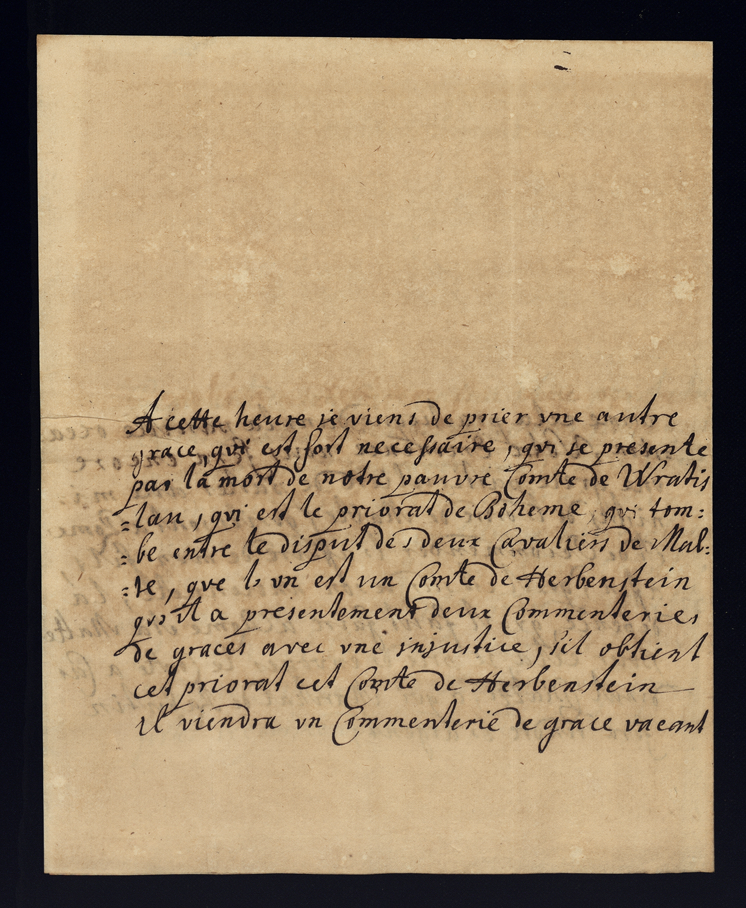 A cette heure je viens de prier vne autre
grace, qui est fort necessaire, qui se presente
par la mort de notre pauvre Comte de Wratis
=lau, qui est le priorat de Boheme, qui tom=
=be entre le disput des deux Cavaliers de Mal=
=te, que l vn est un Comte de Herbenstein
qu'il a presentement deux Commenteries
de graces avec vne injustice, s'il obtient
cet priorat cet Comte de Herbenstein
il viendra vn Commenterie de grace vacant